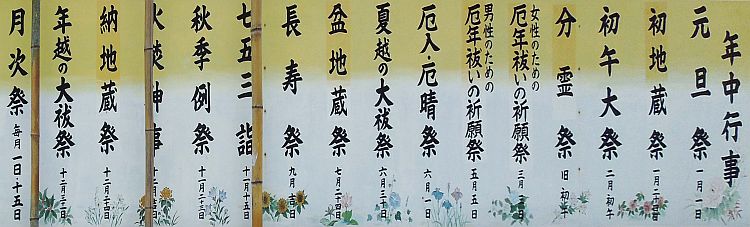 年中行事
元旦祭 一月一日
初地蔵祭 一月二十四日
初午大祭 二月初午
分霊祭 旧初午
女性のための
厄年祓いの祈願祭 三月
男性のための
厄年祓いの祈願祭 五月五日
厄入・厄晴祭 六月一日
夏越の大祓祭 六月三十日
盆地蔵祭 七月二十四日
長寿祭 九月吉日
七五三詣 十一月十五日
秋季例祭 十一月二十三日
火焚神事
納地蔵祭 十二月二十四日
年越の大祓祭 十二月三十一日
月次祭 毎月一日・十五日